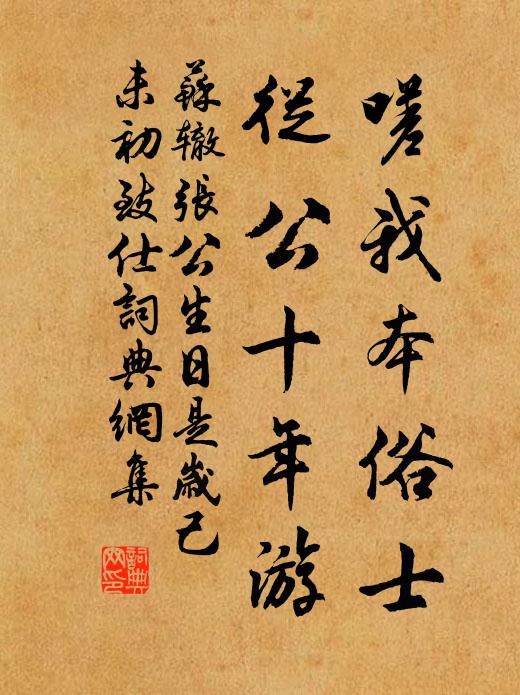 嗟我本俗士
從公十年游
蘇辙張公生日是歲己
未初致仕詞典網集
詞典
网印